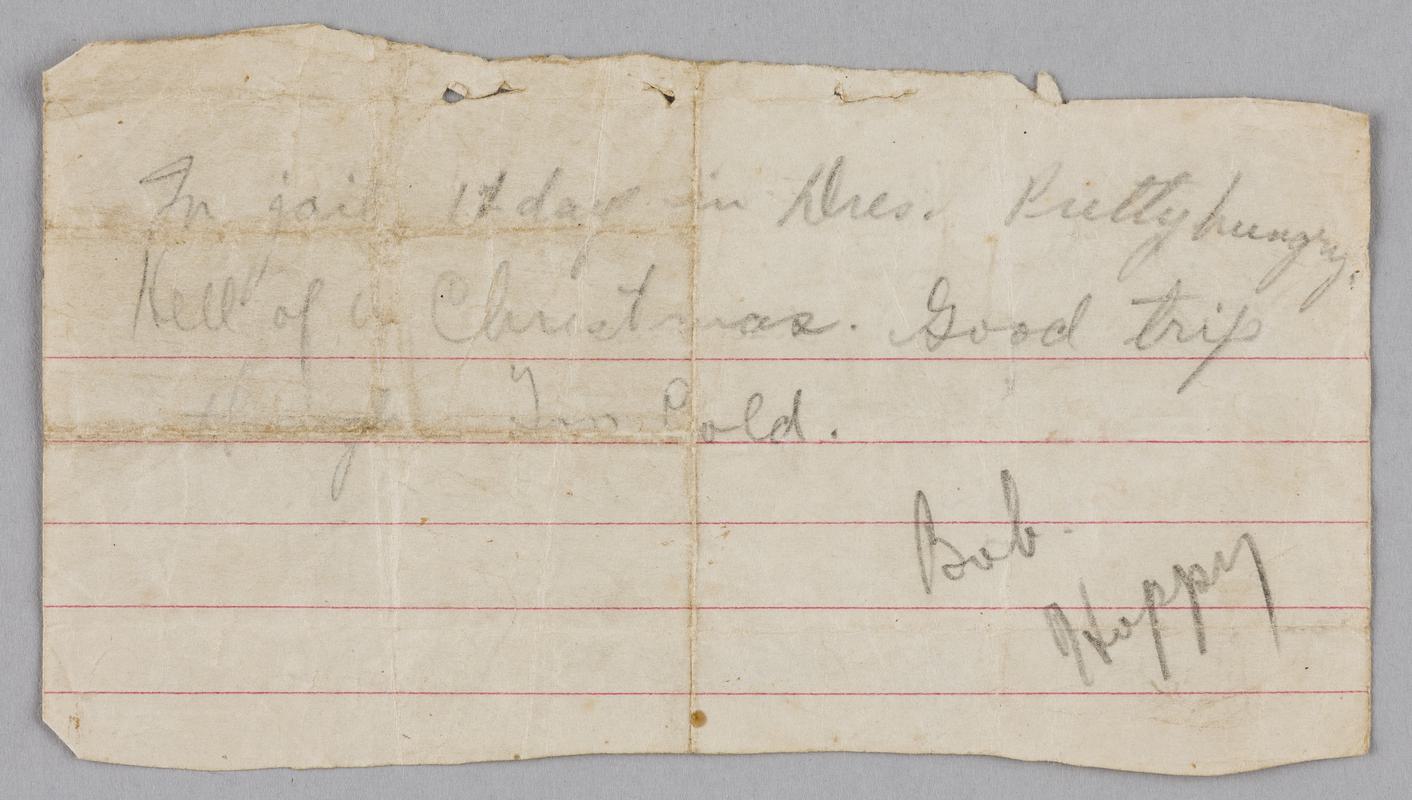 In jail 17 days in Dres. Pretty hungry.
Hell of a Christmas. Good trip
though Too Cold.
Bob.
Hoppy